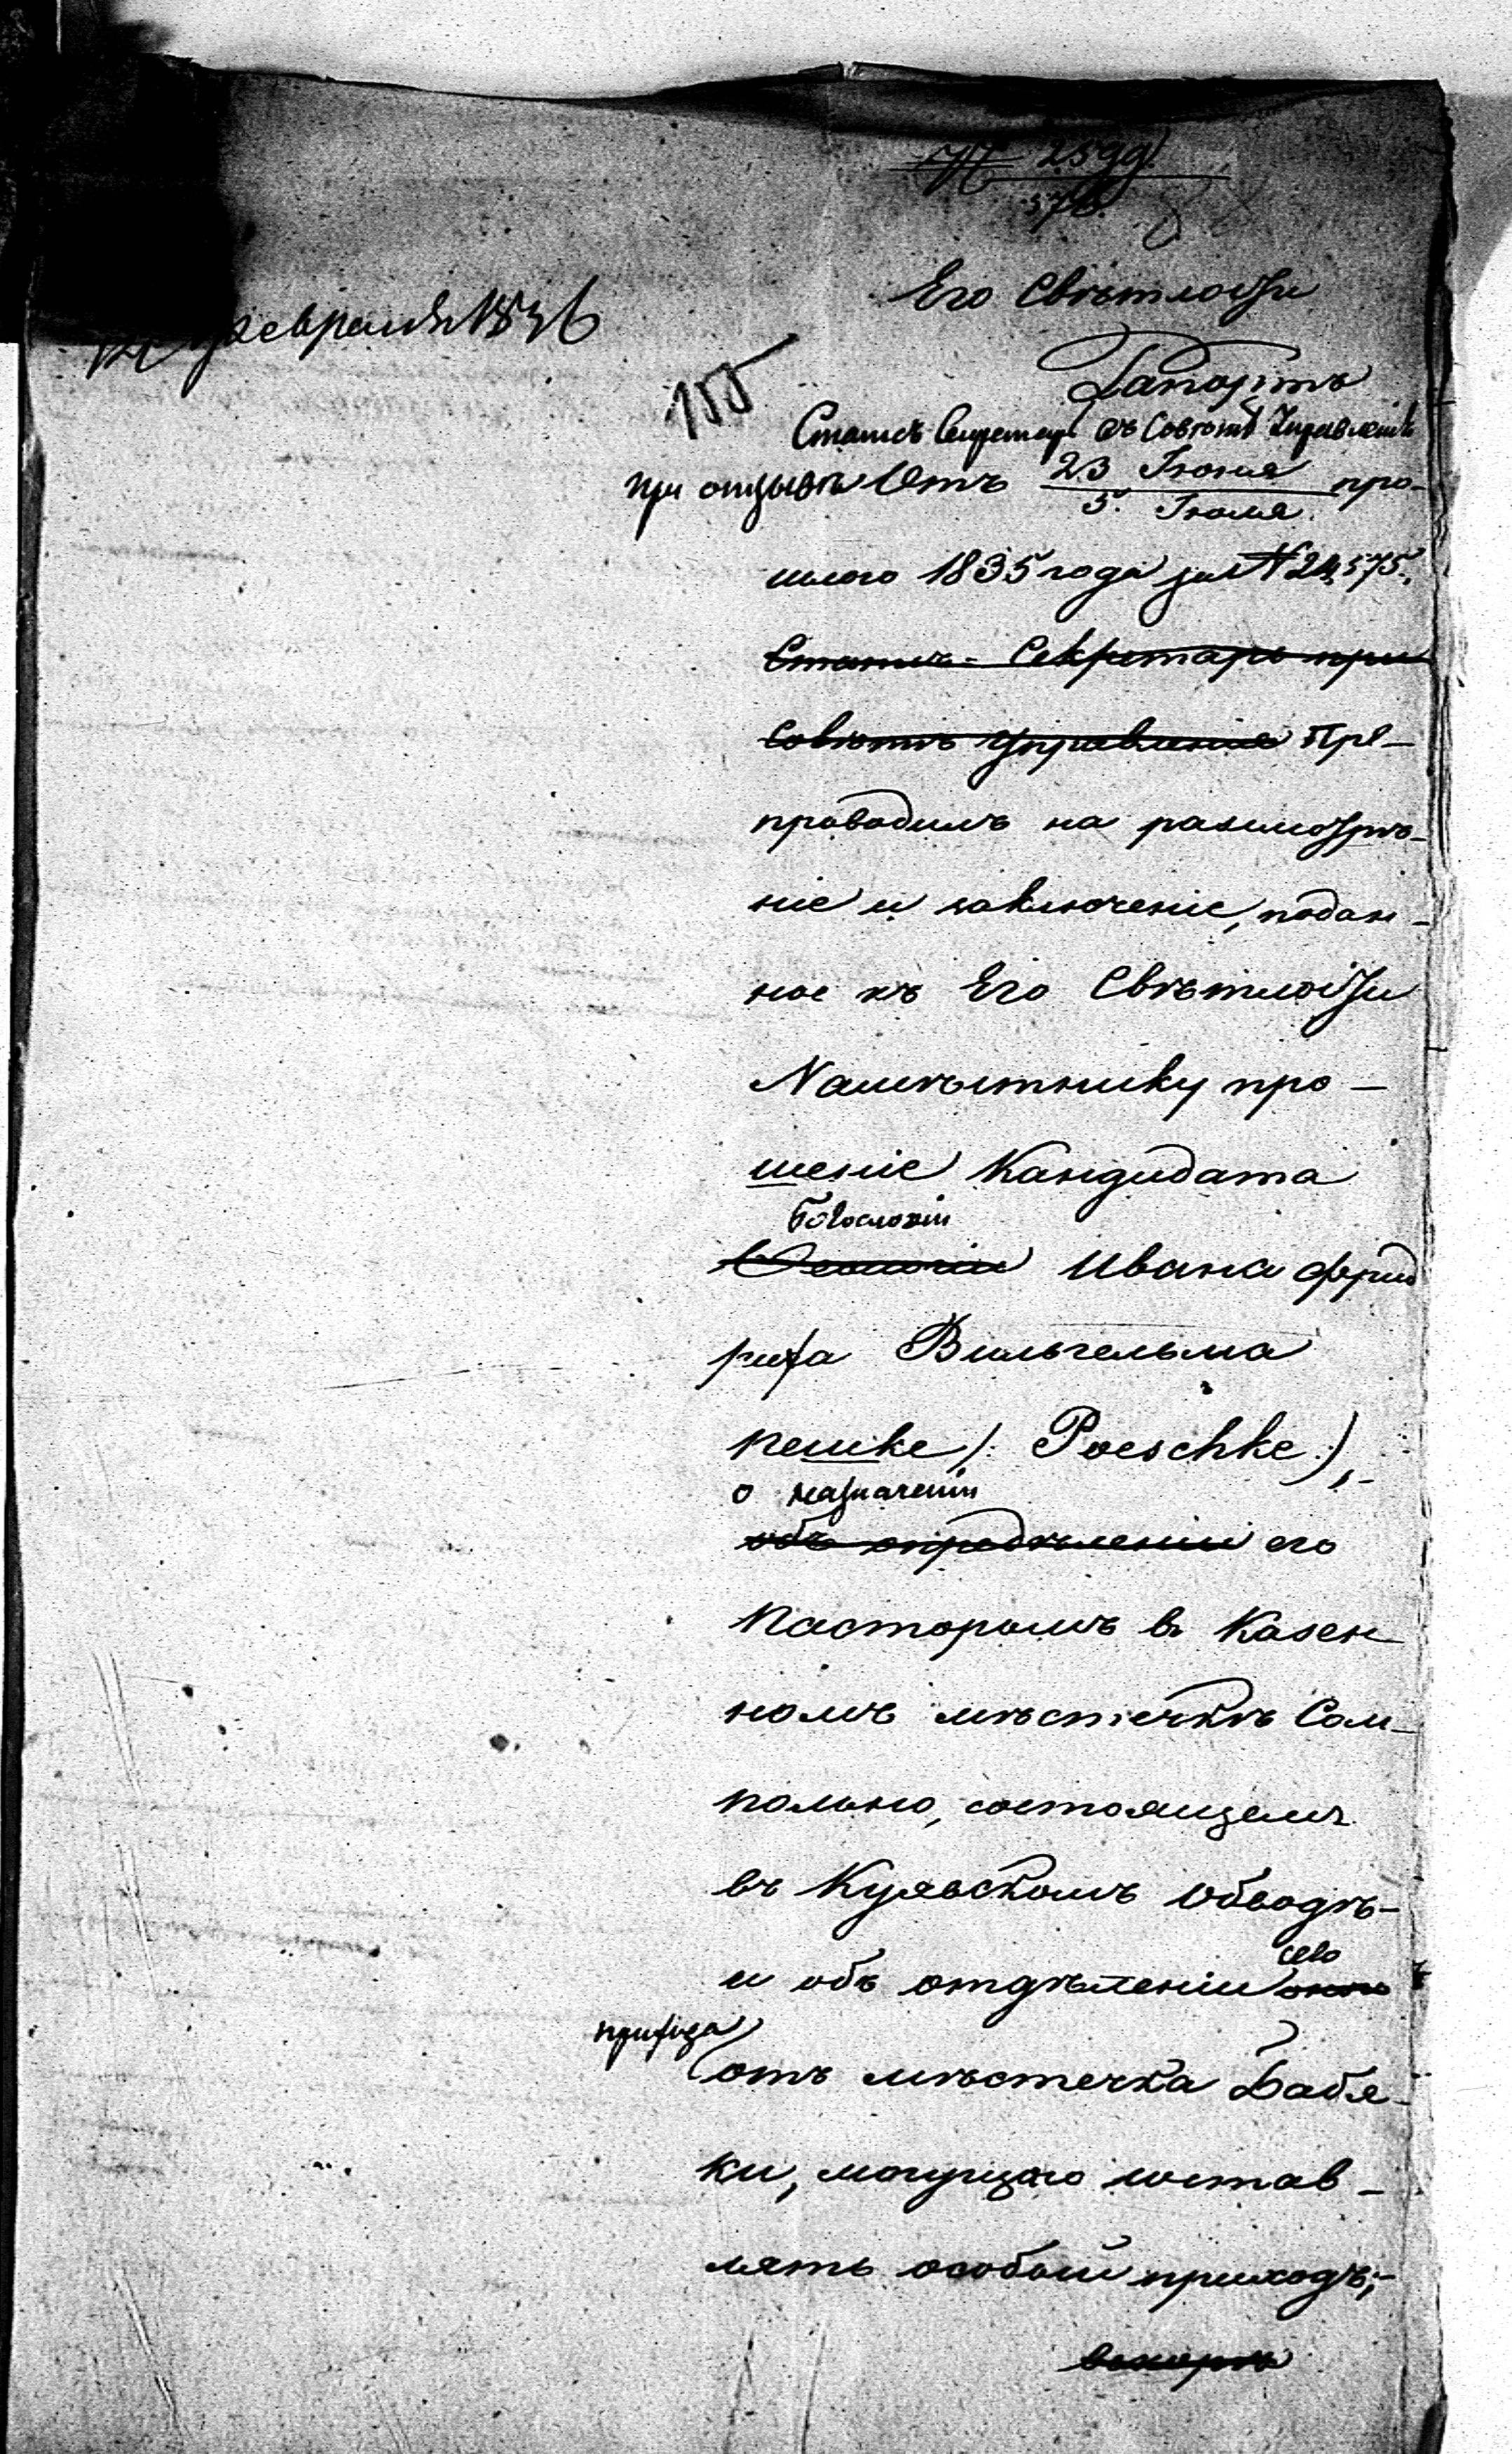 № 2599
Его Свѣтлости
Февраля 1836
155
Рапортъ
Статсъ Секретарь въ Совѣтѣ Управленія
при отзывѣ Отъ 23 Іюня про-
5. Іюля.
шлаго 1835 года за № 24,575.
Статсъ-Секретарь при
Совѣтѣ Управленія Пре-
проводилъ на разсмотрѣ-
ніе и заключеніе, подан-
ное къ Его Свѣтлости
Намѣстнику про-
шеніе Кандидата
Богословіи
Ивана Фрид
риха Вильгельма
Пешке (: Poeschke :),-
о назначеніи
объ опредѣленіи его
Пасторомъ въ Казен
номъ мѣстечкѣ Сом-
польно, состоящемъ
въ Куявскомъ Обводѣ-
и объ отдѣленіи онаго
сего
прихода
отъ мѣстечка Бабя-
ки, могущаго состав-
лять особый приходъ;-